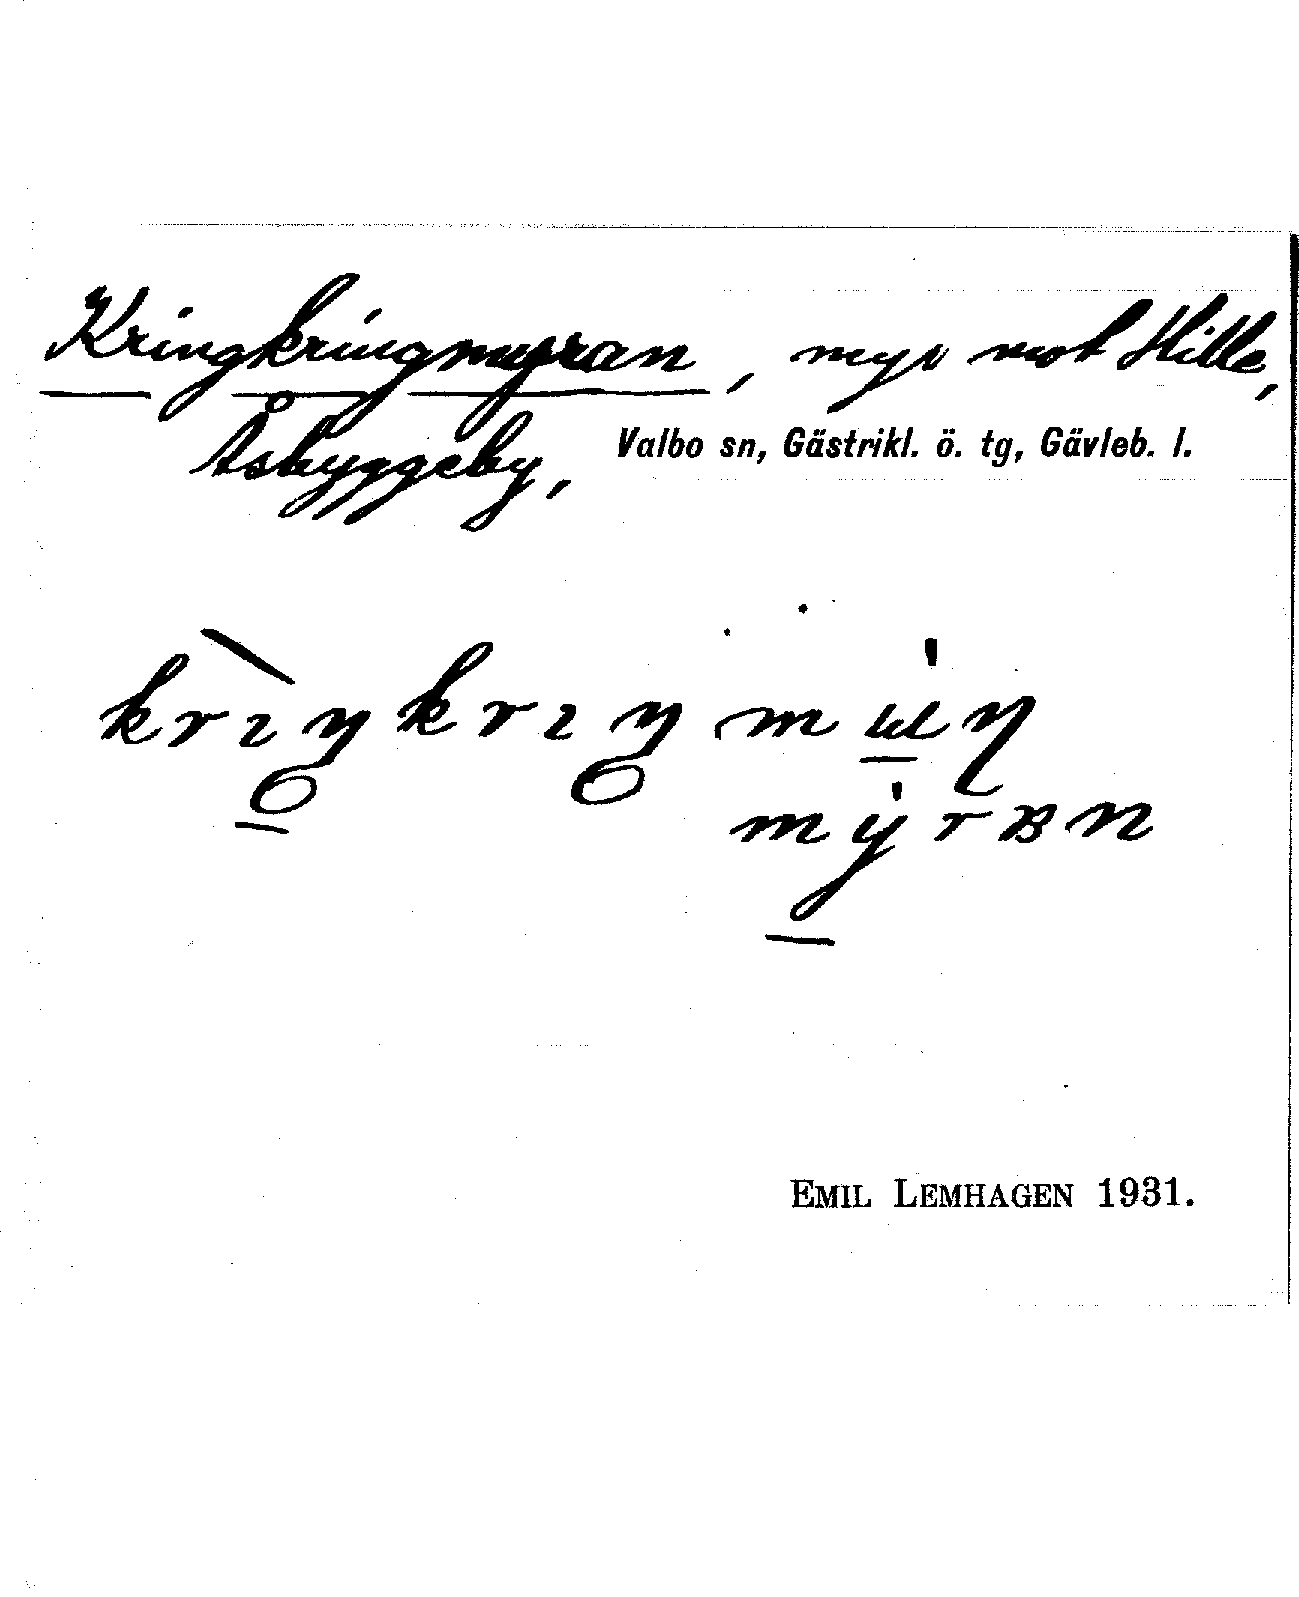 Kringkringmyran, myr mot Hille,
Åsbyggeby, Valbo sn, Gästrikl. ö. tg, Gävleb. l.
krìŋkrıŋ
mýrʙn
EMIL LEMHAGEN 1931.